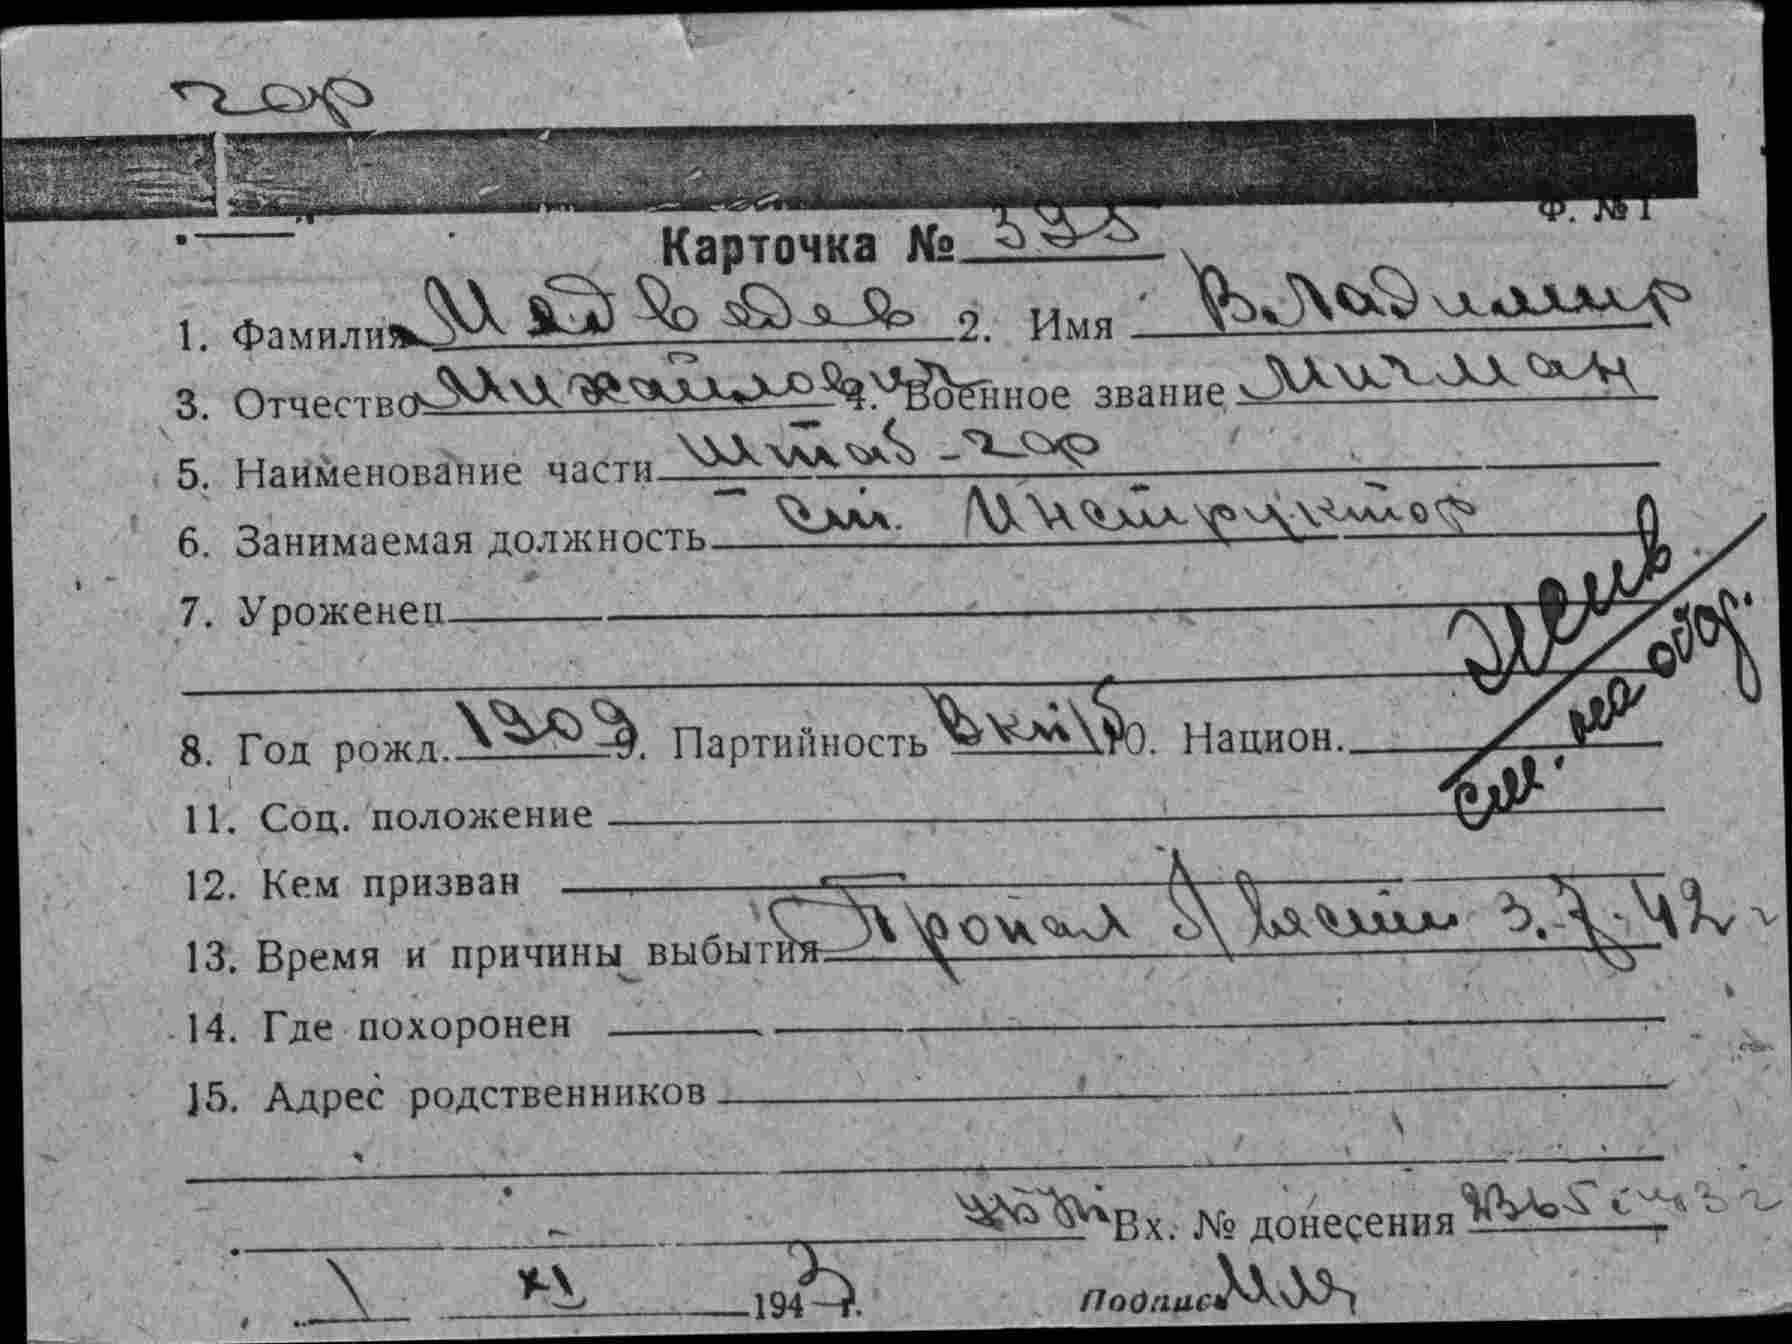 гор
Ф. № 1
Карточка № 395
1. Фамилия Медведев 2. Имя Владимир
3. Отчество Михайлович 4. Военное звание Мичман
5. Наименование части штаб-гор
6. Занимаемая должность Ст. Инструктор
7. Уроженец
жив
см. на обор.
8. Год рожд. 1909 9. Партийность Вкп\б 10. Национ.
11. Соц. положение
12. Кем призван
13. Время и причины выбытия Пропал б/вести 3.7.42 г
14. Где похоронен
15. Адрес родственников
Вх. № донесения
1 XI 1943 г.
Подпись